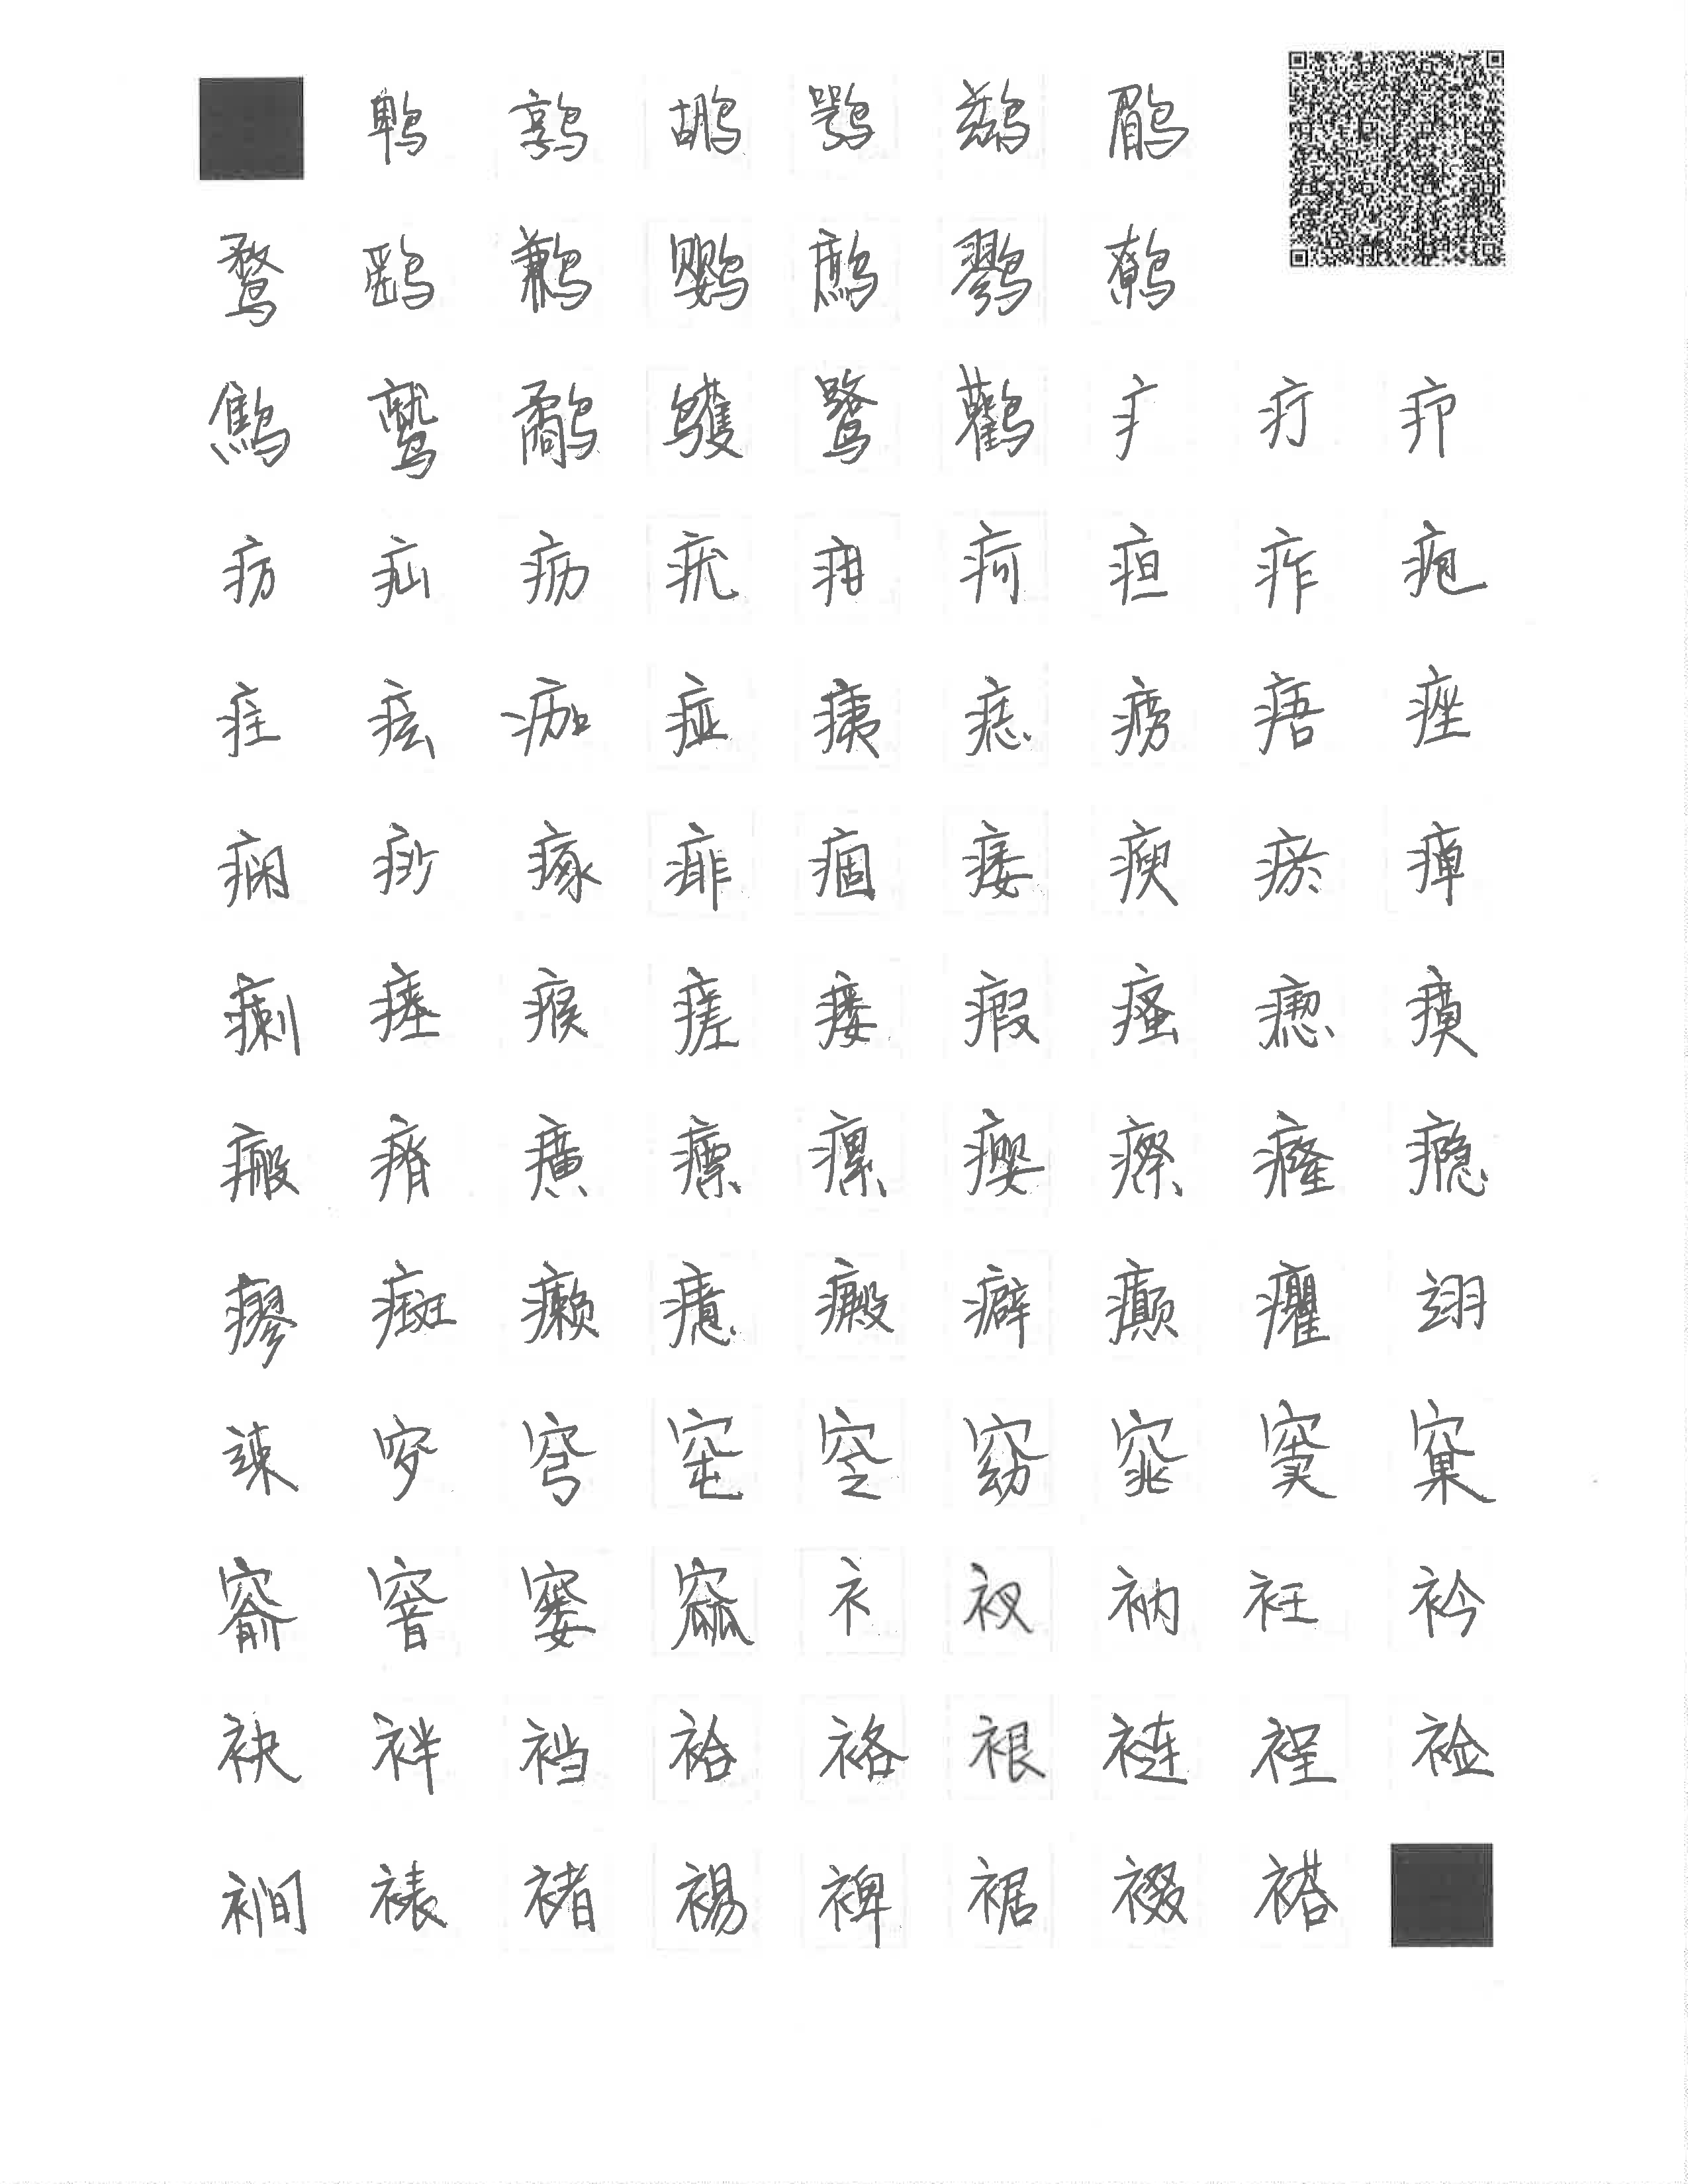 鹎鹑鹕鹗鹚鹛
鹜鹞鹣鹦鹧鹨鹩
鹪鹫鹬鹱鹭鹳疒疔疖
疠疝疬疣疳疴疸痄疱
疰痃痂痖痍痣痨痦痤
痫痧瘃痱痼痿瘐瘀瘅
瘌瘗瘊瘥瘘瘕瘙瘛瘼
瘢瘠癀瘭瘰瘿瘵癃瘾
瘳癍癞癔癜癖癫癯翊
竦穸穹窀窆窈窕窦窠
窬窨窭窳衤衩衲衽衿
袂袢裆袷袼裉裢裎裣
裥裱褚裼裨裾裰褡